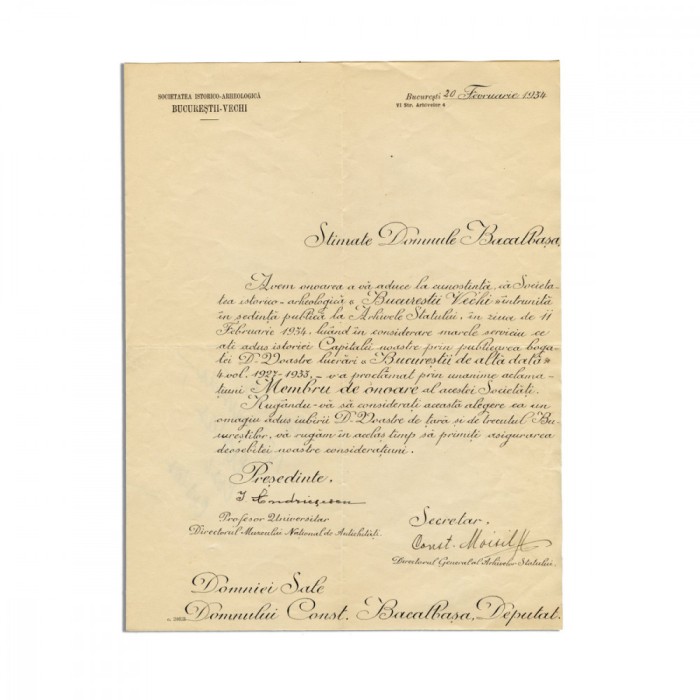 SOCIETATEA ISTORICO-ARHEOLOGICĂ
BUCUREȘTII-VECHI
București 20 Februarie 1934
VI Str. Arhivelor 4
Stimate Domnule Bacalbașa,
Avem onoarea a vă aduce la cunostintă, că Societa-
tea istorico-arheologică « Bucureștii Vechi » întrunită
în ședință publică la Arhivele Statului, în ziua de 11
Februarie 1934, luând în considerare marele serviciu ce
ați adus istoriei Capitalei noastre prin publicarea boga-
tei D-Voastre lucrări « Bucureștii de altă dată »
4 vol. 1927-1933, - v-a proclamat prin unanime aclama-
țiuni Membru de onoare al acestei Societăți.
Rugându-vă să considerați această alegere ca un
omagiu adus iubirii D-Voastre de țară și de trecutul Bu-
cureștilor, vă rugăm în acelaș timp să primiți asigurarea
deosebitei noastre considerațiuni.
Președinte,
I Andrieșescu
Profesor Universitar
Directorul Muzeului Național de Antichități.
Secretar,
Const. Moisil
Directorul General al Arhivelor Statului.
Domniei Sale
Domnului Const. Bacalbașa, Deputat.